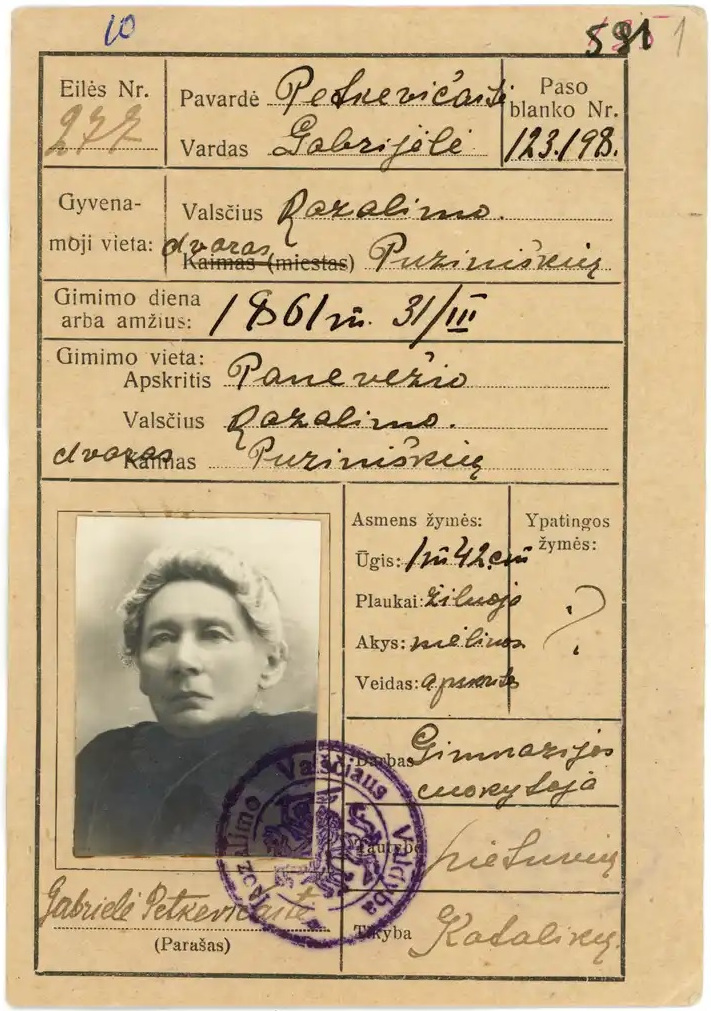 10
591 1
Eilės Nr. 277
Pavardė Petkevičaitė
Vardas Gabrijėlė
Paso
blanko Nr.
123.198.
Gyvena-
moji vieta:
Valsčius Razalimo.
dvaras Kaimas (miestas) Puziniškių
Gimimo diena
arba amžius: 1861 m. 31/III
Gimimo vieta:
Apskritis Panevėžio
Valsčius Razalimo.
dvaras Kaimas Puziniškių
Asmens žymės:
Ūgis: 1 m 42 cm
Plaukai: žiluoja
Akys: mėlinos
Veidas:
Ypatingos
žymės:
?
Darbas Gimnazijos
mokytoja
Tautybė Lietuvių
Tikyba Katalikų.
Gabrielė Petkevičaitė
(Parašas)
Rozalimo Valsčiaus Valdyba